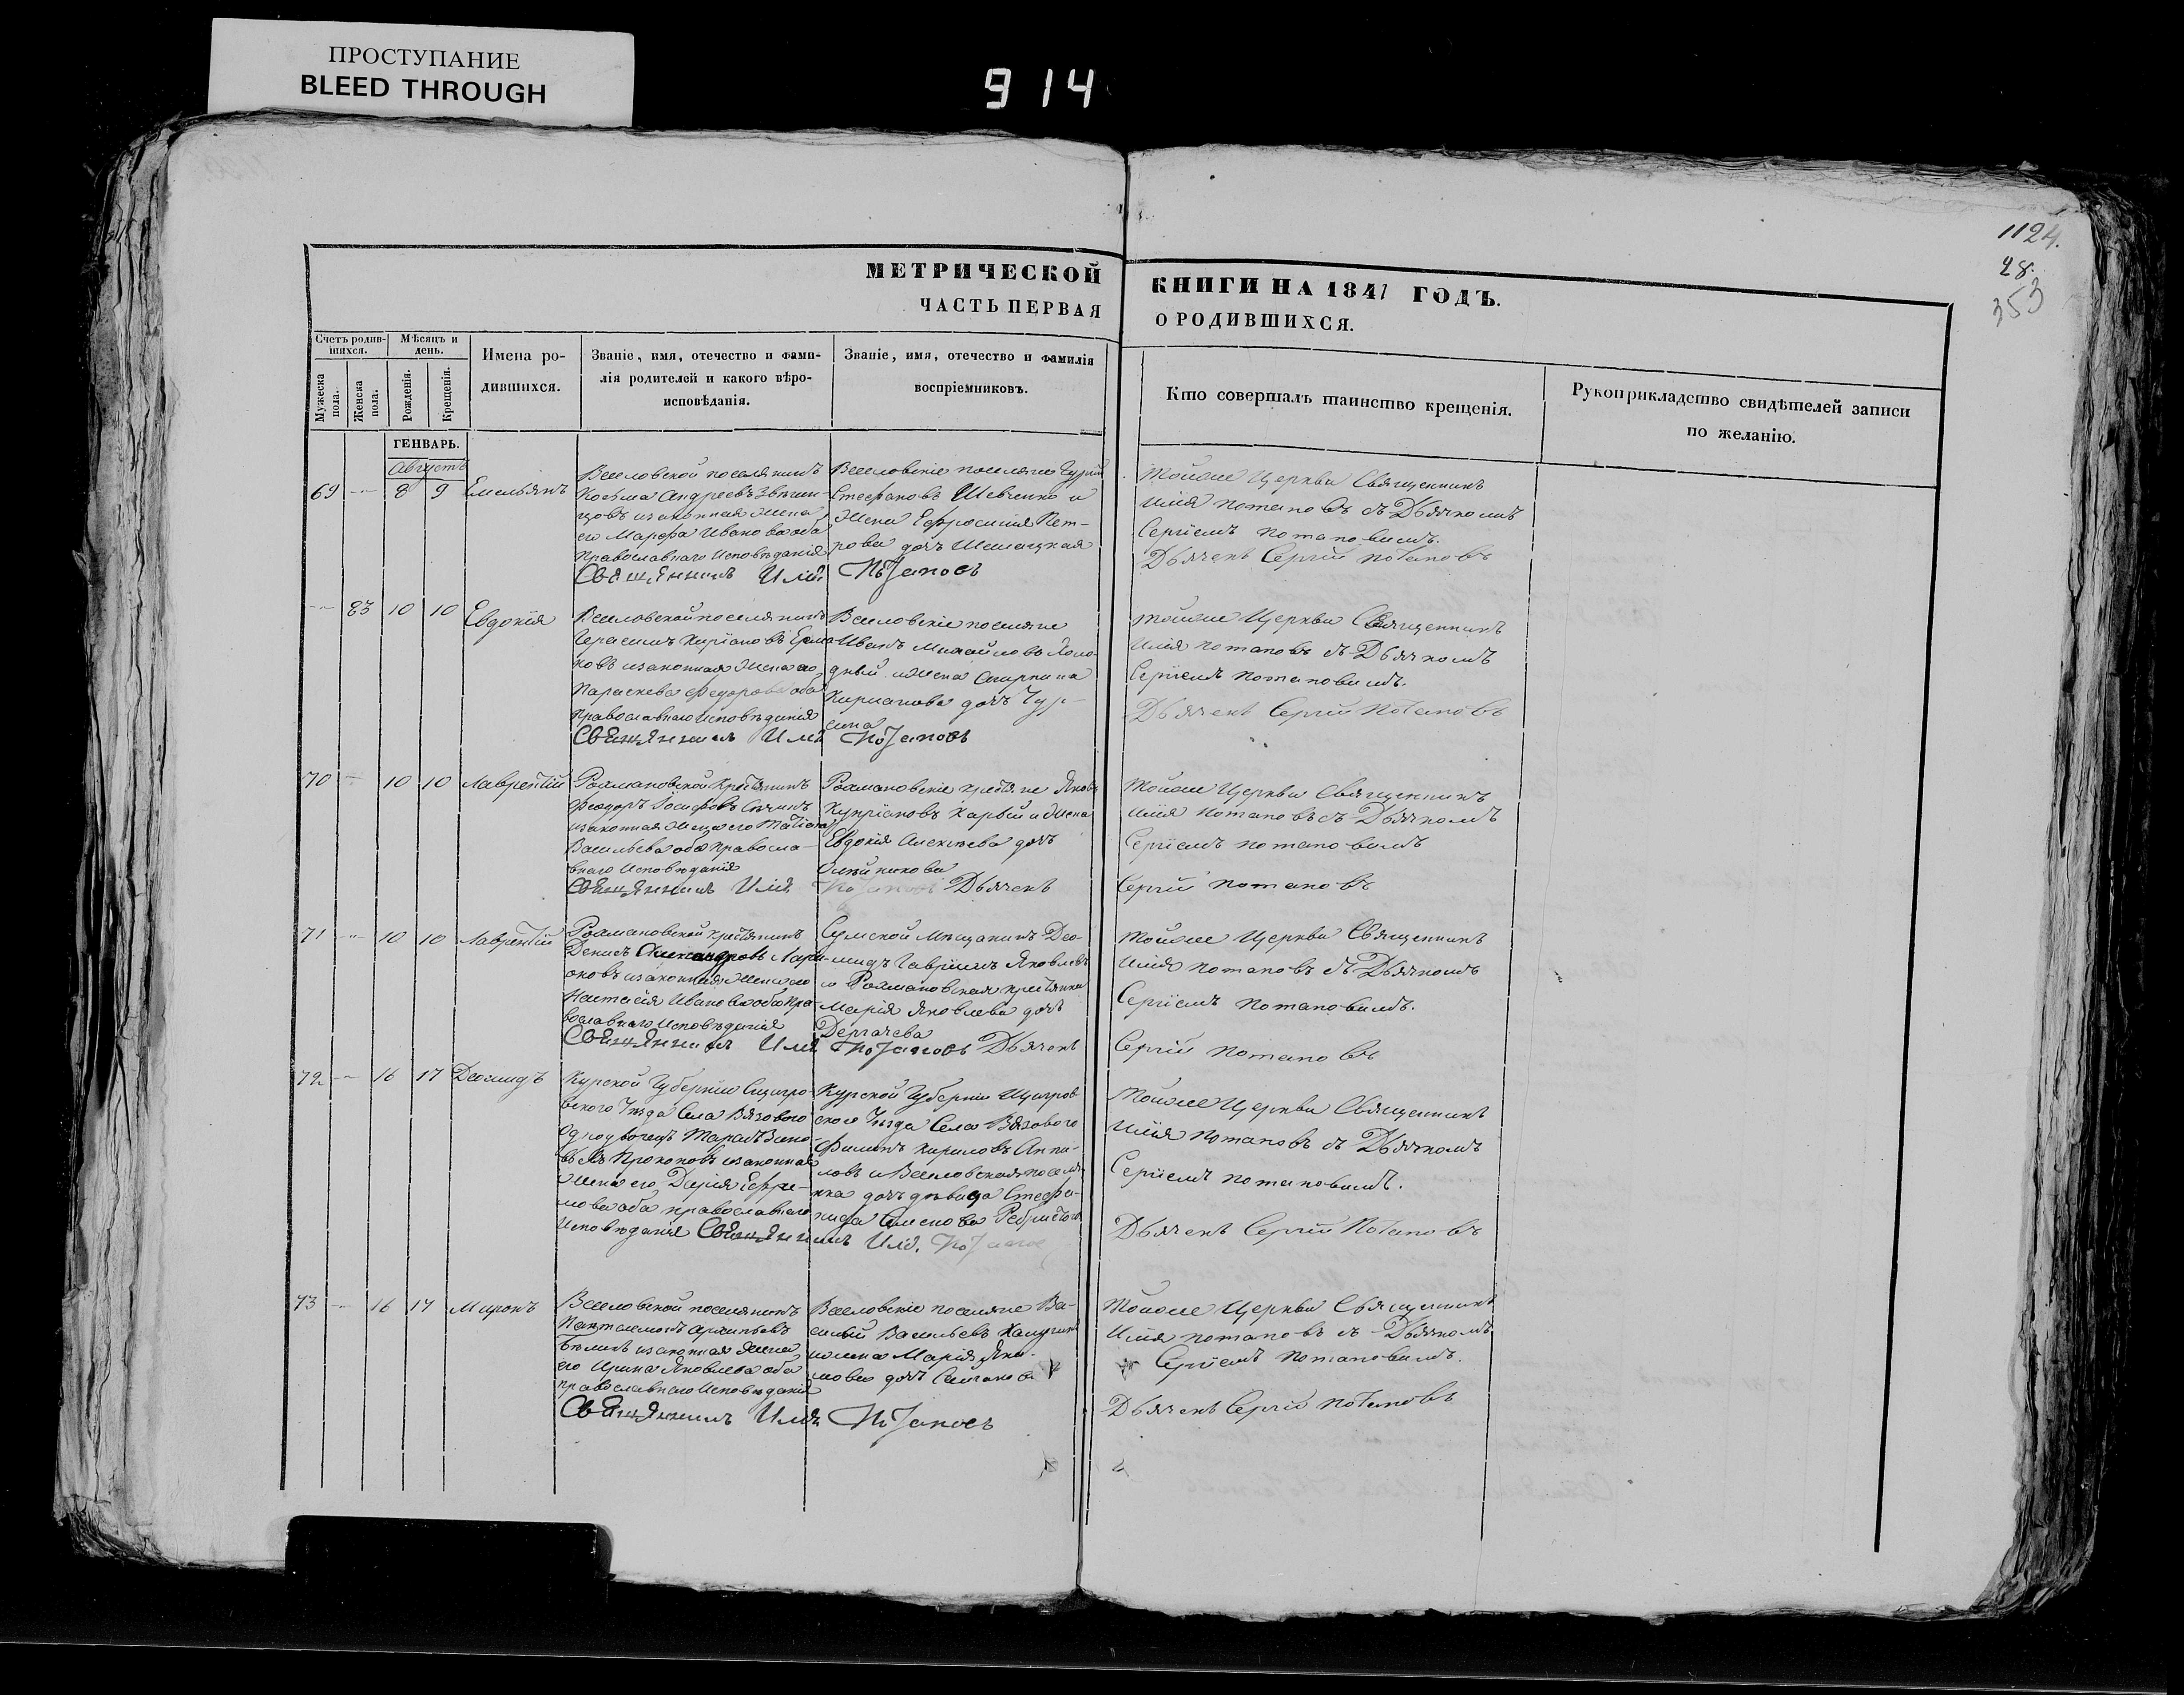 ПРОСТУПАНИЕ
BLEED THROUGH
914
1124.
28.
353
МЕТРИЧЕСКОЙ КНИГИ НА 1847 ГОДЪ.
ЧАСТЬ ПЕРВАЯ О РОДИВШИХСЯ.
Счетъ родившихся.
Мужеска пола.
Женска пола.
Мѣсяцъ и день.
Рожденія.
Крещенія.
Имена родившихся.
Званіе, имя, отечество и фамилія родителей и какого вѣроисповѣданія.
Званіе, имя, отечество и фамилія воспріемниковъ.
Кто совершалъ таинство крещенія.
Рукоприкладство свидѣтелей записи по желанію.
ГЕНВАРЬ.
Августъ
69 8 9 Емельянъ
Веселовской поселянинъ
Косьма Андреевъ
изаконная Жена
его Марфа Иванова оба
Православнаго Исповѣданія
Веселовскіе поселяне Гурій
Стефановъ Шевченко и
Жена Ефросинія Пет-
рова дочь
Священникъ Илія Потаповъ
Тойже Церкви Священникъ
Илія Потаповъ съ Дьячкомъ
Сергіемъ Потаповимъ.
Дьячекъ Сергій Потаповъ
83 10 10 Евдокія
Веселовской поселянинъ
Герасимъ Киріановъ Ерма-
ковъ изаконная Жена его
Параскева Федорова оба
Православнаго Исповѣданія
Веселовскіе поселяне
Иванъ Михайловъ Коло-
дный иЖена
дочь Гур-
Священникъ Илія Потаповъ
Тойже Церкви Священникъ
Илія Потаповъ съ Дьячкомъ
Сергіемъ Потаповимъ.
Дьячекъ Сергій Потаповъ
70 10 10 Лаврентій
Рохмановской Крестянинъ
Феодоръ Іосифовъ
изаконная Жена его Татіана
Васильева оба Правосла-
внаго Исповѣданія
Рохмановскіе крестяне Яковъ
Купріановъ и Жена
Евдокія Алексѣева дочь
Олейникова
Священникъ Илія Потаповъ Дьячекъ
Тойже Церкви Священникъ
Илія Потаповъ съ Дьячкомъ
Сергіемъ Потаповимъ
Сергій Потаповъ
71 10 10 Лаврентій
Рохмановской крестянинъ
Денисъ Александровъ Лари-
оновъ изаконная Жена его
Настасія Иванова оба Пра-
вославнаго Исповѣданія
Сумской Мѣщанинъ Део-
мидъ Гавріилъ Яковлевъ
и Рохмановская крестянка
Марія Яковлева дочь
Дергачева
Священникъ Илія Потаповъ Дьячекъ
Тойже Церкви Священникъ
Илія Потаповъ съ Дьячкомъ
Сергіемъ Потаповимъ.
Сергій Потаповъ
72 16 17 Деомидъ
Курской Губерніи Щигро-
вского Уѣзда Села Вязового
Однодворецъ Тарасъ Зино-
вьевъ Прокоповъ изаконная
Жена его Дарія Ефи-
мова оба православнаго
Исповѣданія
Курской Губерніи Щигров-
ского Уѣзда Села Вязового
Филипъ Кириловъ Анпи-
ловъ и Веселовская поселя-
нка дочь дѣвица Стефа-
нида Семенова
Священникъ Илія Потаповъ
Тойже Церкви Священникъ
Илія Потаповъ съ Дьячкомъ
Сергіемъ Потаповимъ.
Дьячекъ Сергій Потаповъ
73 16 17 Миронъ
Веселовской поселянинъ
Пантелемонъ Архиповъ
изаконная Жена
его Ирина Яковлева оба
православнаго Исповѣданія
Веселовскіе поселяне Ва-
силій Васильевъ Калугинъ
иЖена Марія Яки-
мова дочь
Священникъ Илія Потаповъ
Тойже Церкви Священникъ
Илія Потаповъ съ Дьячкомъ
Сергіемъ Потаповимъ.
Дьячекъ Сергій Потаповъ